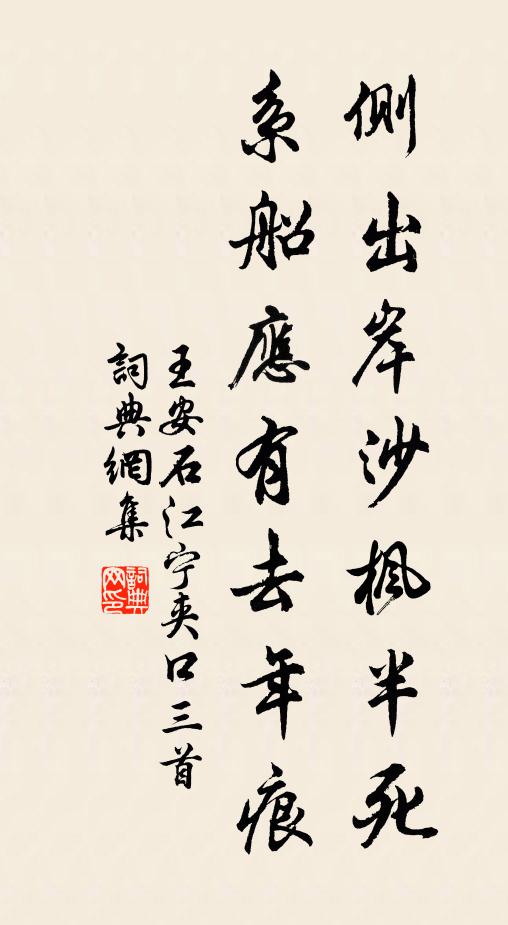 側出岸沙楓半死
系船應有去年痕
王安石江宁夹口三首
詞典網集
詞典网印